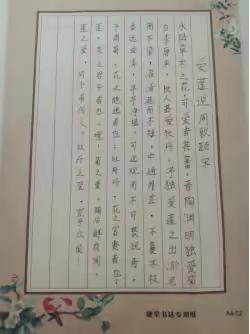 爱莲说 周敦颐 宋
水陆草木之花,可爱者甚蕃。晋陶渊明独爱菊
自李唐来,世人甚爱牡丹。予独爱莲之出淤泥
而不染,濯清涟而不妖,中通外直,不蔓不枝
香远益清,亭亭净植,可远观而不可亵玩焉。
予谓菊,花之隐逸者也;牡丹,花之富贵者也;
莲,花之君子者也。噫!菊之爱,陶后鲜有闻。
莲之爱,同予者何人。牡丹之爱,宜乎众矣。
硬笔书法专用纸